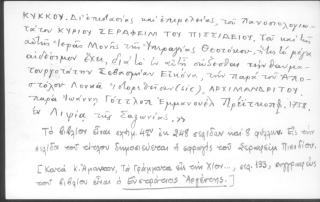 ΚΥΚΚΟΥ. Δι' ἐπιστασίας καὶ ἐπιμελείας, τοῦ Πανοσιολογιω-
τάτου ΚΥΡΙΟΥ ΣΕΡΑΦΕΙΜ ΤΟΥ ΠΙΣΣΙΔΕΙΟΥ, Τοῦ καὶ
αὐτῆς Ἱερᾶς Μονῆς τῆς Ὑπεραγίας Θεοτόκου, ἥτις τὸ μέγα
αἰδέσιμον ἔχει, διὰ τὸ ἐν αὐτῇ σώζεσθαι τὴν θαυμα-
τουργοτάτην Σεβασμίαν Εἰκόνα, τὴν παρὰ τοῦ Ἀπο-
στόλου Λουκᾶ (sic), ΑΡΧΙΜΑΝΔΡΙΤΟΥ.
παρὰ Ἰωάννῃ Γόττλοπ Ἐμμανουὴλ
ἐν Λιψίᾳ τῆς Σαξωνίας.
Τὸ βιβλίον εἶναι σχῆμ. 4ον ἐκ 248 σελίδων καὶ 8 φύλλων. Εἰς τὴν
σελίδα τοῦ τίτλου δημοσιεύεται ἡ σφραγὶς τοῦ Σεραφεὶμ Πισιδίου.
[Κατὰ Κ. Ἄμαντον, Τὰ Γράμματα εἰς τὴν Χίον..., σελ. 193, συγγραφεὺς
τοῦ βιβλίου εἶναι ὁ Εὐστράτιος Ἀργέντης.]